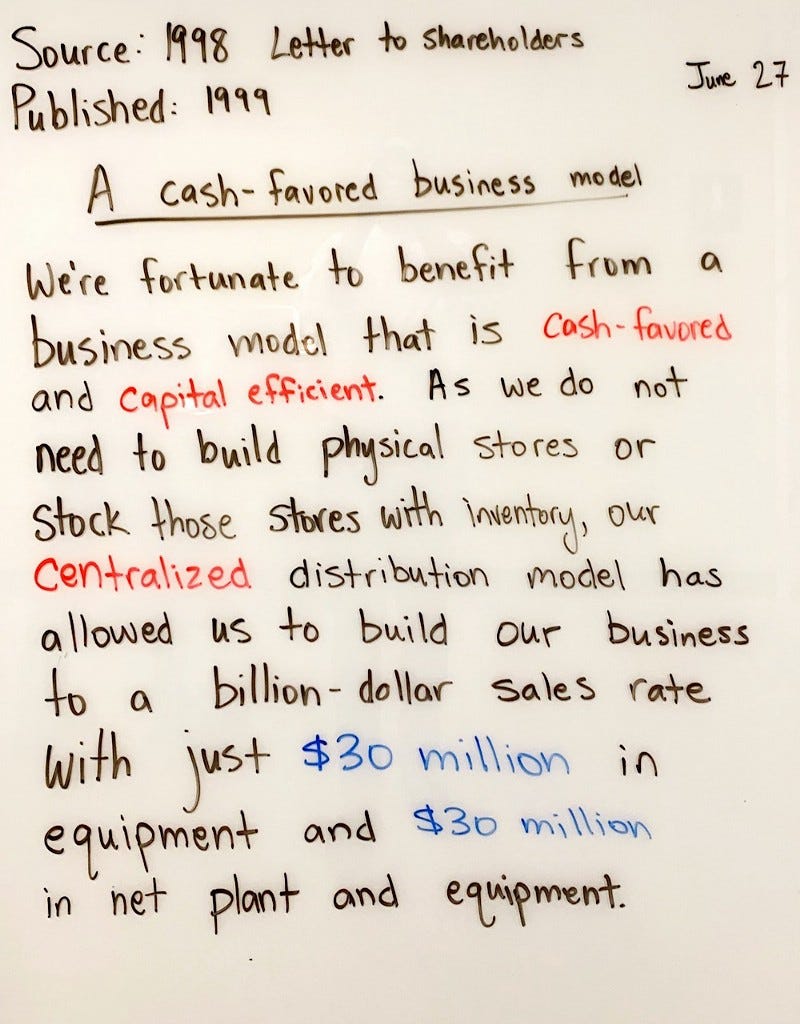 Source: 1998 Letter to Shareholders
June 27
Published: 1999
A cash-favored business model
We're fortunate to benefit from a
business model that is cash-favored
and capital efficient. As we do not
need to build physical stores or
stock those stores with inventory, our
centralized distribution model has
allowed us to build our business
to a billion-dollar sales rate
with just $30 million in
equipment and $30 million
in net plant and equipment.